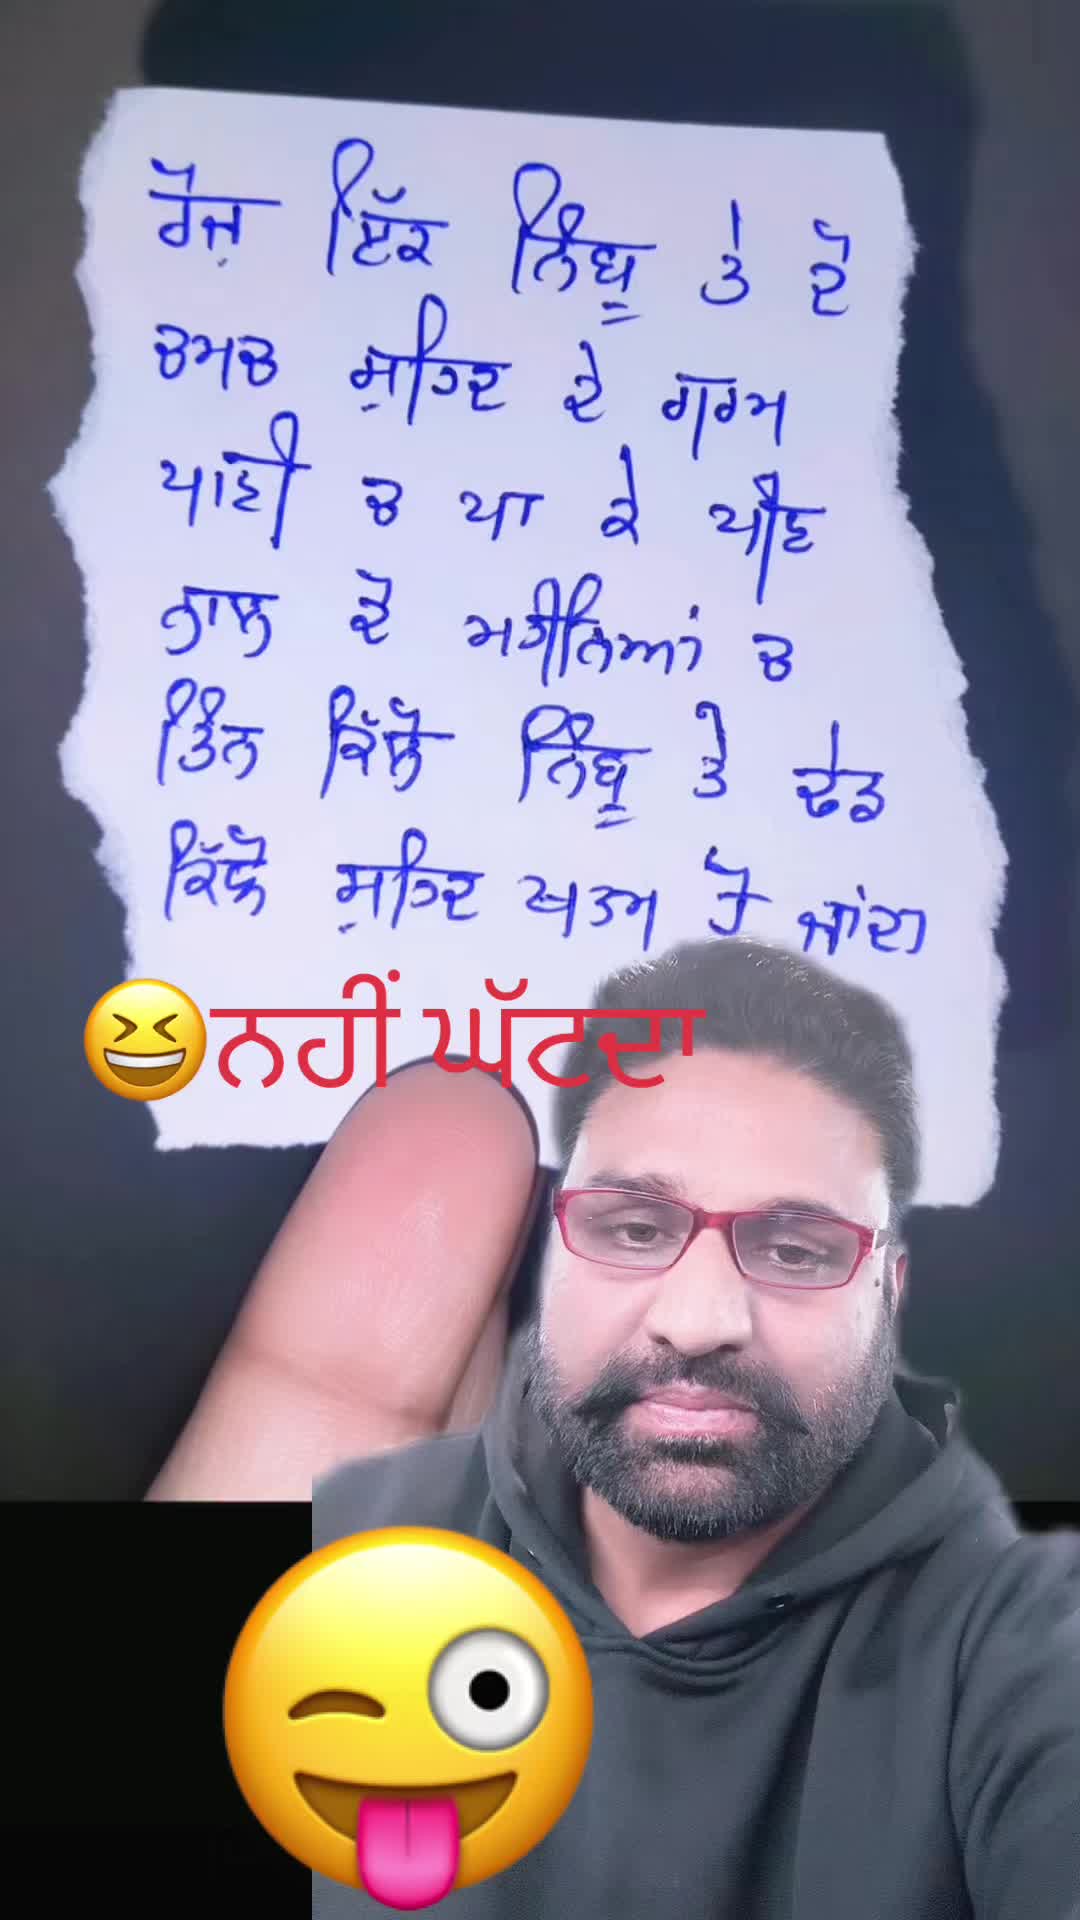 ਰੋਜ਼ ਇੱਕ ਨਿੰਬੂ ਤੇ ਦੋ
ਚਮਚ ਸ਼ਹਿਦ ਦੇ ਗਰਮ
ਪਾਣੀ ਚ ਪਾ ਕੇ ਪੀਣ
ਨਾਲ ਦੋ ਮਹੀਨਿਆਂ ਚ
ਤਿੰਨ ਕਿੱਲੋ ਨਿੰਬੂ ਤੇ ਢੇਡ
ਕਿੱਲੋ ਸ਼ਹਿਦ ਖਤਮ ਹੋ ਜਾਂਦਾ
😆ਨਹੀਂ ਘੱਟਦਾ